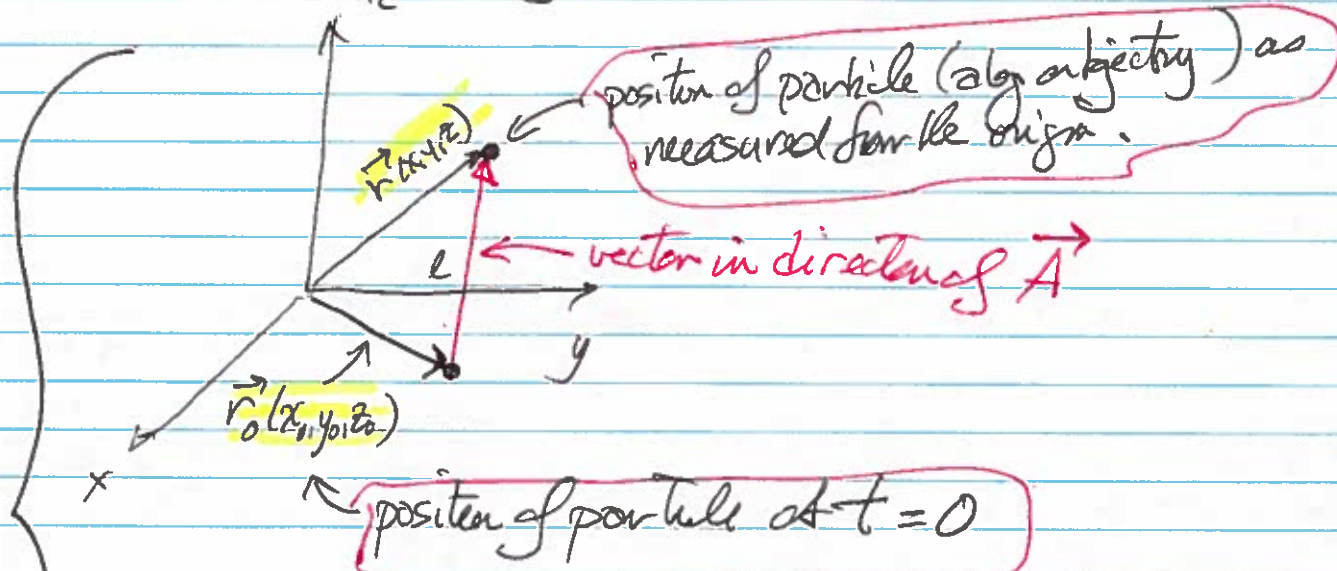 position of particle (along trajectory) as
measured from the origin.
r⃗(x,y,z)
vector in direction of A⃗
l
y
r⃗₀(x₀,y₀,z₀)
x
position of particle at t = 0